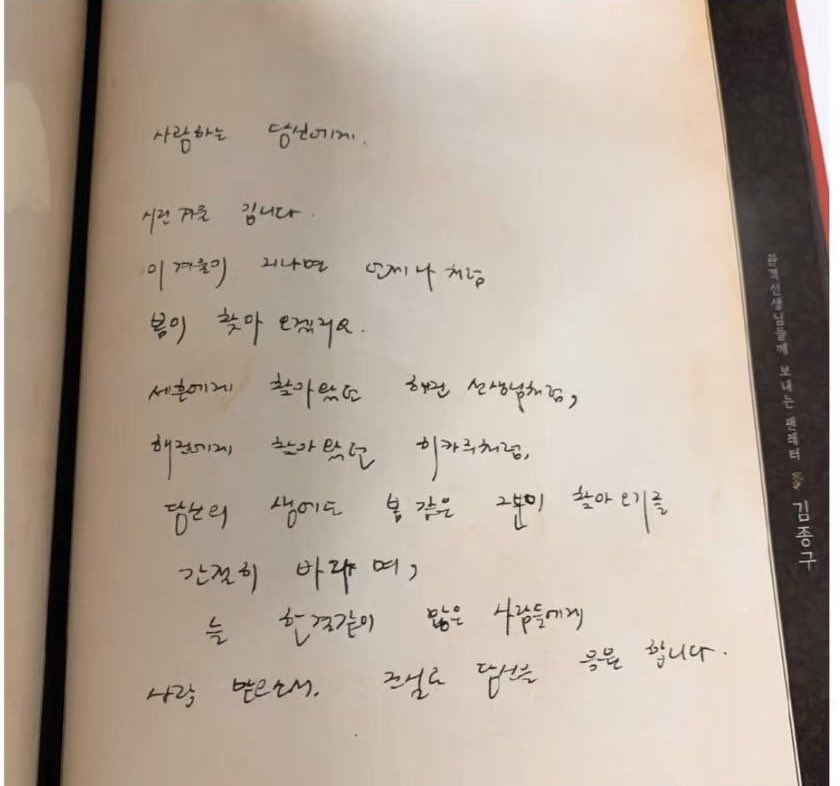 사랑하는 당신에게.
시린 겨울 입니다.
이 겨울이 지나면 언제나처럼
봄이 찾아 오겠지요.
세훈에게 찾아왔던 해진 선생님처럼,
해진에게 찾아왔던 히카루처럼,
당신의 생에도 봄 같은 그분이 찾아 오기를
간절히 바라며,
늘 한결같이 많은 사람들에게
사랑 받으소서. 진실로 당신을 응원 합니다.
관객선생님들께 보내는 팬레터 김종구